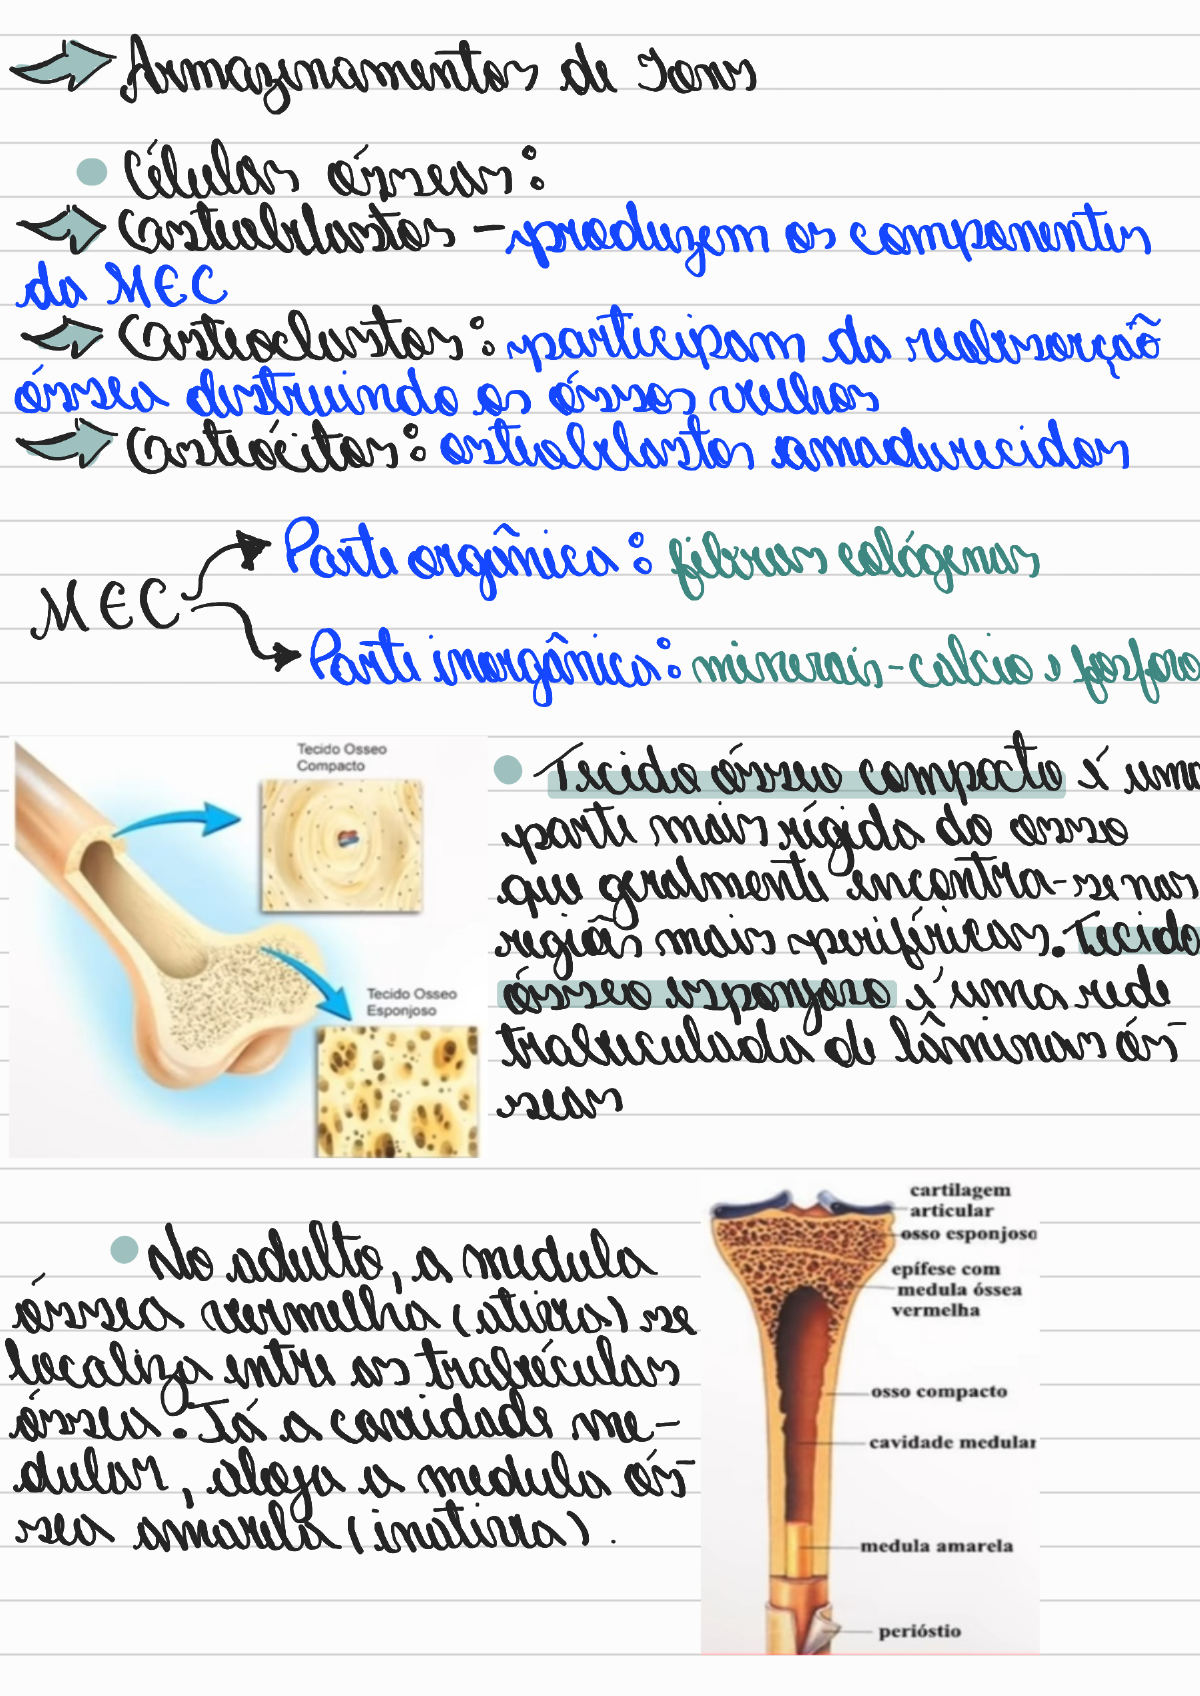 Armazenamentos de Íons
Células ósseas:
Osteoblastos - produzem os componentes
da MEC
Osteoclastos: participam da reabsorção
óssea destruindo os óssos velhos
Osteócitos: osteoblastos amadurecidos
Parte orgânica: fibras colágenas
MEC
Parte inorgânica: minerais-calcio e fósforo
Tecido Osseo
Compacto
Tecido Osseo
Esponjoso
Tecido ósseo compacto é uma
parte mais rígida do osso
que geralmente encontra-se nas
regiões mais periféricas. Tecido
ósseo esponjoso é uma rede
trabeculada de lâminas ós-
seas
cartilagem
articular
osso esponjoso
epífese com
medula óssea
vermelha
osso compacto
cavidade medular
medula amarela
perióstio
No adulto, a medula
óssea vermelha (ativa) se
localiza entre as trabéculas
óssea. Já a cavidade me-
dular, aloja a medula ós-
sea amarela (inativa).